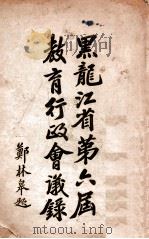 黑龍江省第六屆
教育行政會議錄
鄭林皋題
www.topoi.org